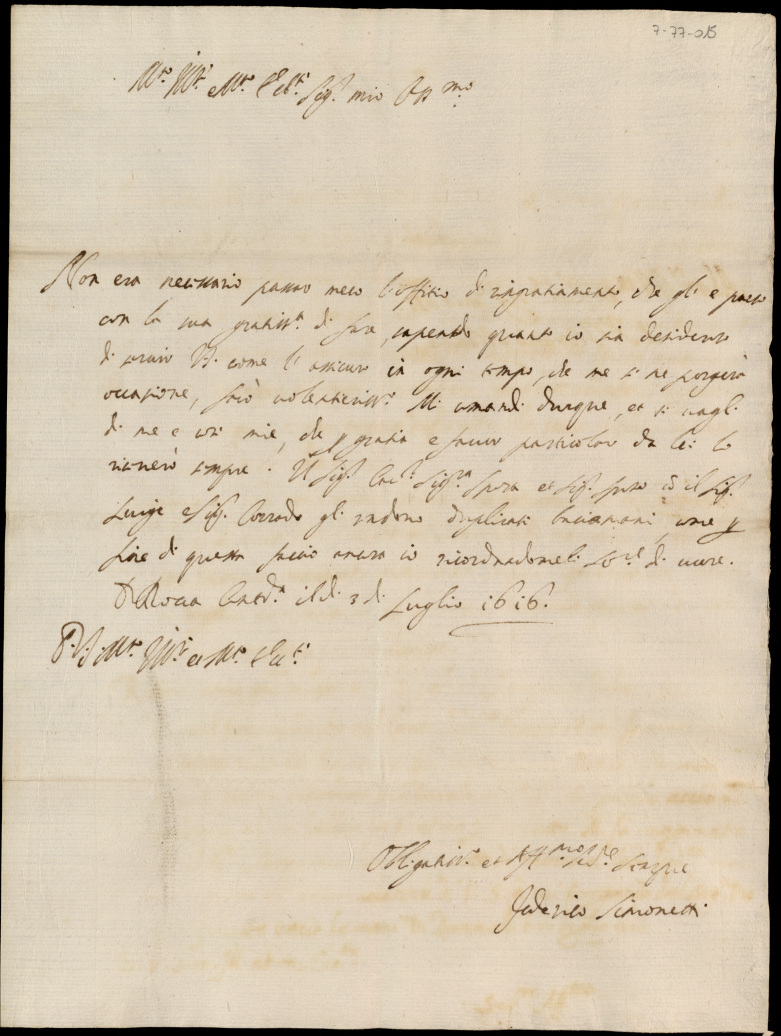 7-77-015
Mto Illre e Mto Eccte Sigr mio Ossmo
Non era necessario passar meco l'offitio di ringratiamento, che gli è piaciuto
con la sua gratissa di fare, sapendo quanto io sia desideroso
di servir V.S. come l'assicuro in ogni tempo, che me se ne porgerà
occasione, farò volentierissmo Mi comandi dunque, et si vagli
di me e cose mie, che p gratia e favor particolar da lei lo
riceverò sempre. Il Sigr Sigra et Sigr il Sigr
Luigi e Sigr Corrado gli rendono duplicati baciamani, come p
fine di questa faccio ancora io ricordandomeli di cuore.
Di Rocca il di 3 di Luglio 1616.
D. V. S. Mto Illre et Mto Ecctte
Obligatisso et Affmo Sre
Federico Simonetti